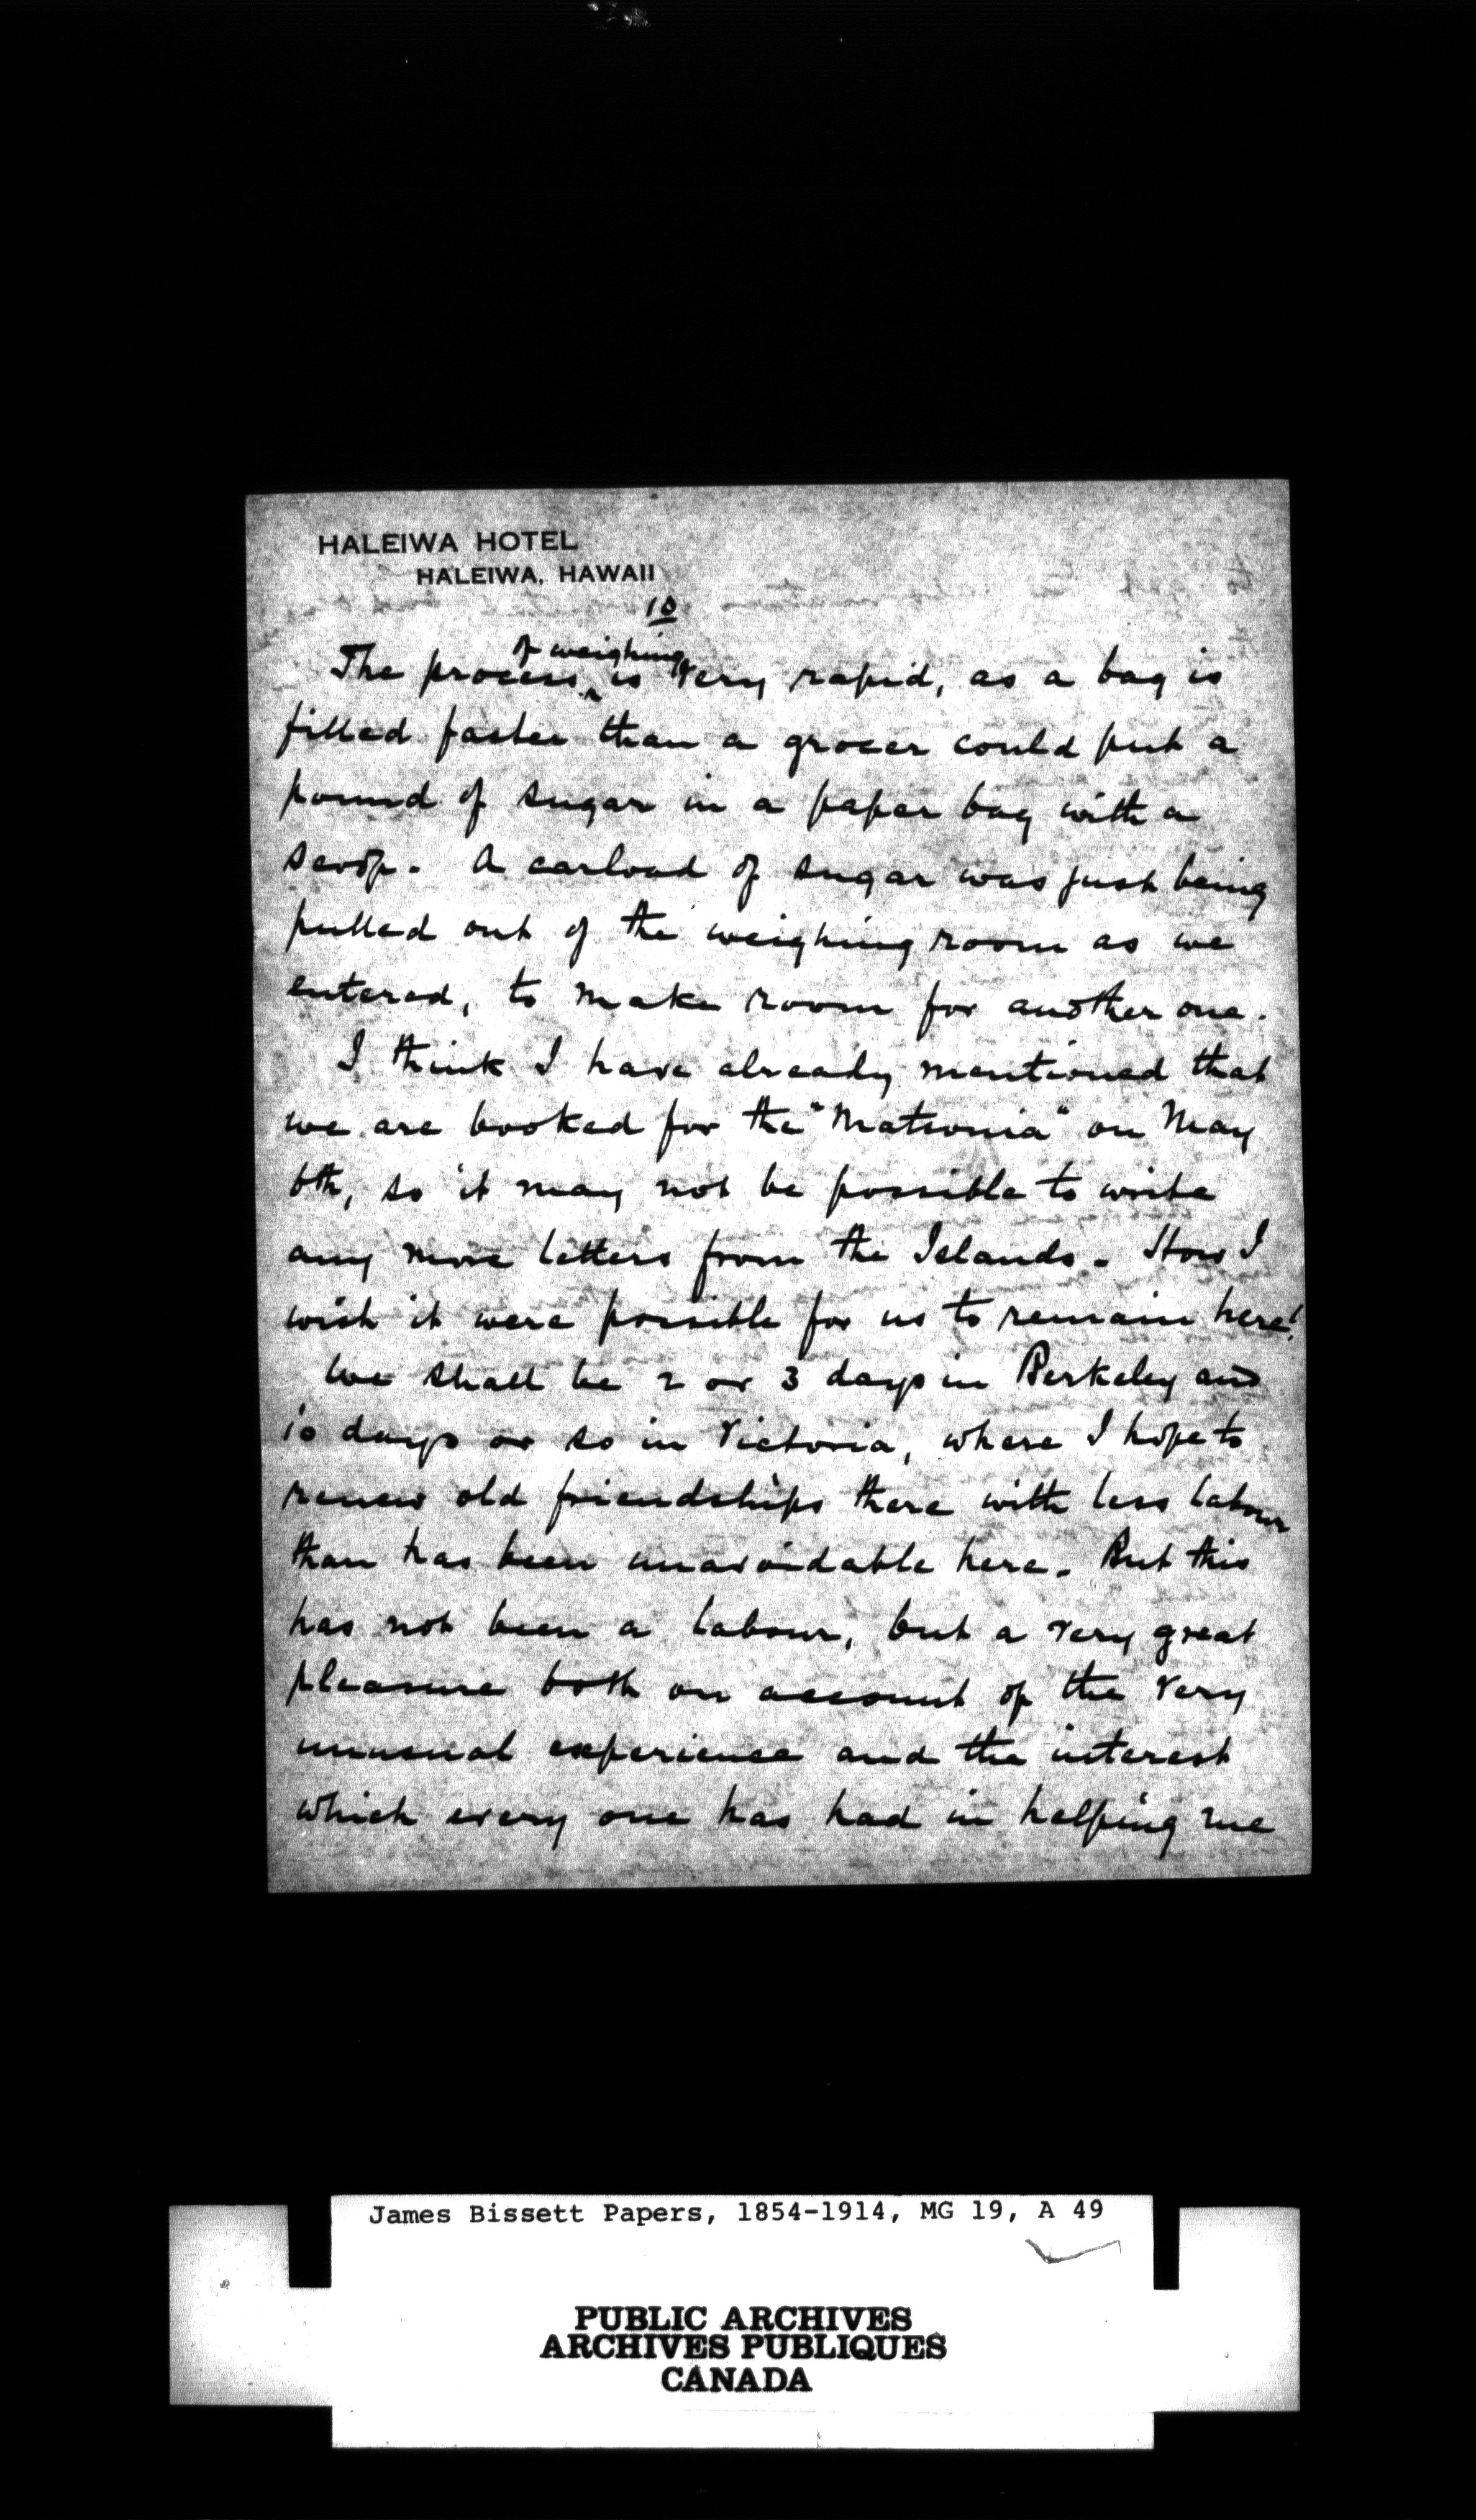 HALEIWA HOTEL
HALEIWA, HAWAII
10
of weighing
The process ^ is very rapid, as a bag is
filled faster than a grocer could put a
pound of sugar in a paper bag with a
scoop. A carload of sugar was just being
pulled out of the weighing room as we
entered, to make room for another one.
I think I have already mentioned that
we are booked for the "Matsonia" on May
6th, so it may not be possible to write
any more letters from the Islands. How I
wish it were possible for us to remain here!
We shall be 2 or 3 days in Berkeley and
10 days or so in Victoria, where I hope to
renew old friendships there with less labour
than has been unavoidable here. But this
has not been a labour, but a very great
pleasure both on account of the very
unusual experience and the interest
which every one has had in helping me
James Bissett Papers, 1854-1914, MG 19, A 49
PUBLIC ARCHIVES
ARCHIVES PUBLIQUES
CANADA